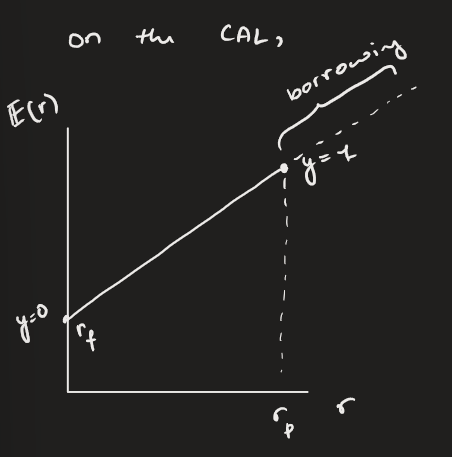 on the CAL,
borrowing
E(r)
y=1
y=0
r_f
r_p
r